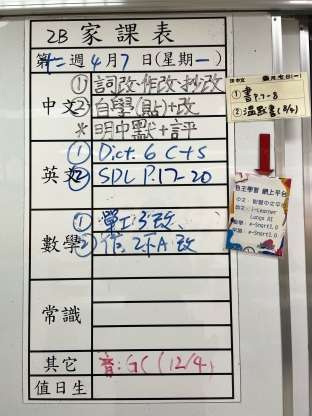 2B 家課表
第十二週 4月7日(星期一)
中文
① 詞改、作改、抄改
② 自學(貼)+改
* 明中默+評
英文
① Dict. 6 C+S
② SDL P.17-20
數學
① 單工 改、
② 作. 2下A:改
常識
其它
音:GC (12/4)
值日生
① 書 P.7-8
② 溫默書(8/4)
自主學習 網上平台
中文:智愛中文平台
i-Learner
e-Smart2.0
e-Smart2.0